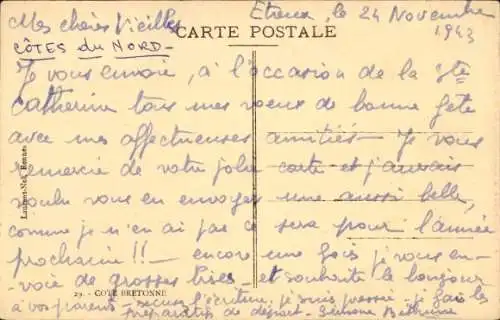 Mes chères Vieilles
Etreux, le 24 Novembre
1943
CARTE POSTALE
CÔTES du NORD -
Je vous envoie, à l'occasion de la Ste
Catherine tous mes voeux de bonne fête
avec mes affectueuses amitiés - Je vous
remercie de votre jolie carte et j'aurais
voulu vous en envoyer une aussi belle,
comme je n'en ai pas ce sera pour l'année
prochaine !! - encore une fois je vous en-
voie de grosses bises - et souhaite le bonjour
à vos parents - excuses l'écriture, je suis pressée - je fais les
préparatifs de départ - Simone
Laurent-Nel, Rennes
29. - COTE BRETONNE